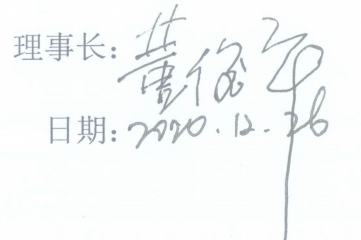 理事长:
日期: 2020.12.26